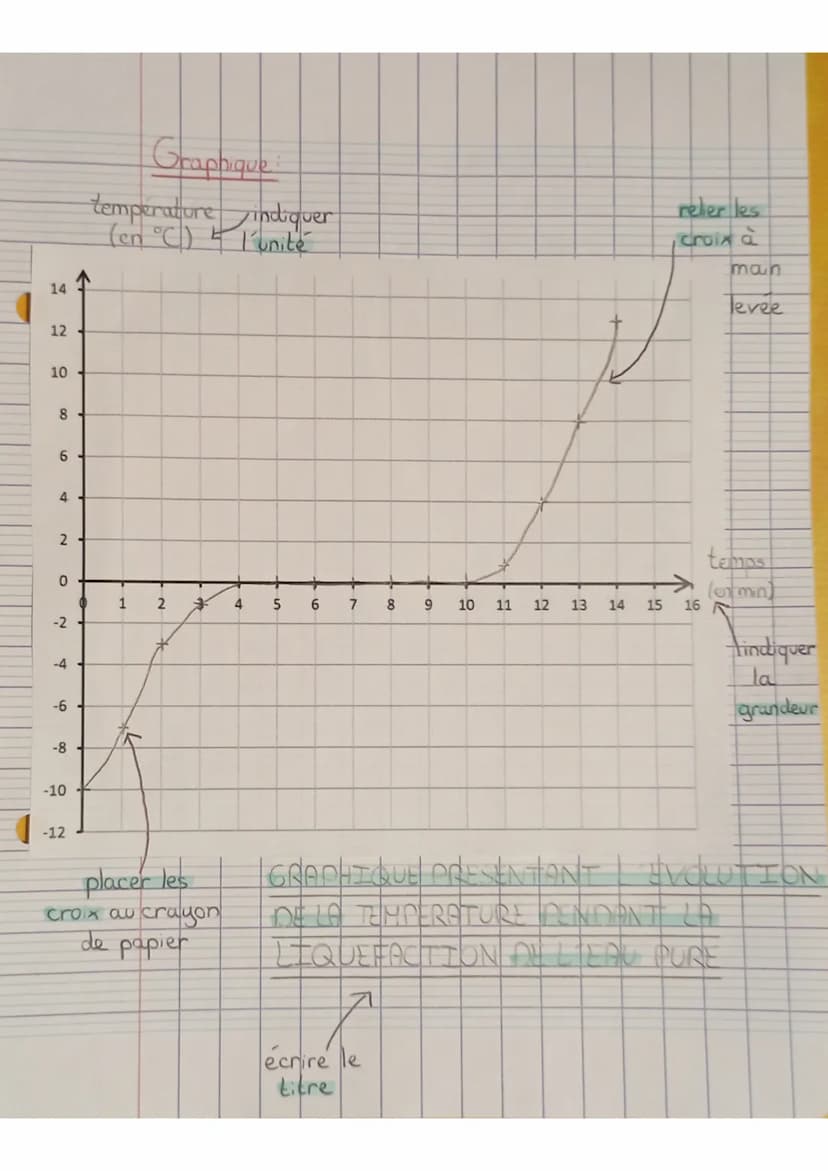 Graphique:
température
(en °C)
indiquer
l'unité
relier les
croix à
main
levée
14
12
10
8
6
4
2
0
-2
-4
-6
-8
-10
-12
0 1 2 3 4 5 6 7 8 9 10 11 12 13 14 15 16
temps
(en min)
indiquer
la
grandeur
placer les
croix au crayon
de papier
GRAPHIQUE PRESENTANT L'EVOLUTION
DE LA TEMPERATURE PENDANT LA
LIQUEFACTION DE L'EAU PURE
écrire le
titre